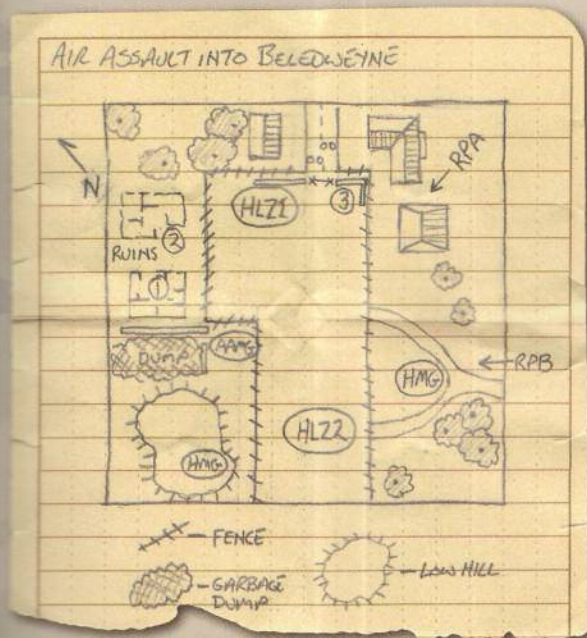 AIR ASSAULT INTO BELEDWEYNE
N
RPA
HLZ1
3
2
RUINS
1
AAMG
DUMP
HMG
RPB
HLZ2
HMG
FENCE
GARBAGE
DUMP
LOW HILL